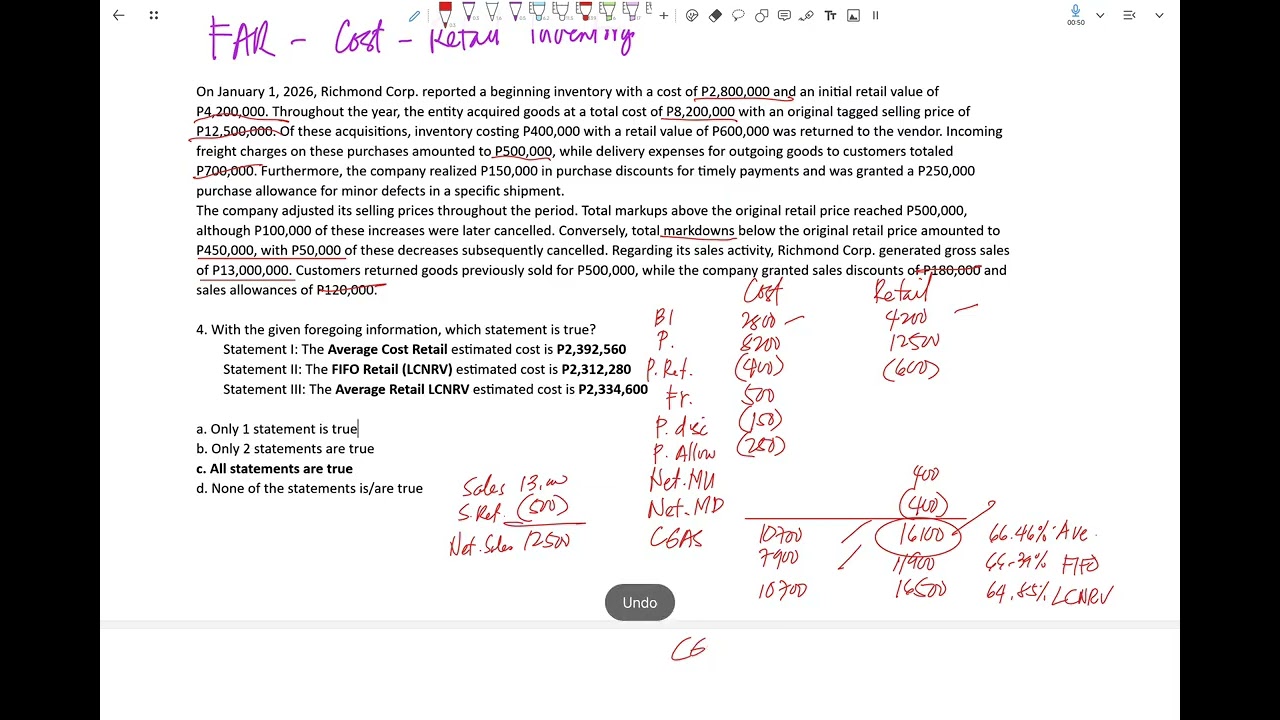 00:50
FAR - Cost - Retail Inventory
On January 1, 2026, Richmond Corp. reported a beginning inventory with a cost of P2,800,000 and an initial retail value of
P4,200,000. Throughout the year, the entity acquired goods at a total cost of P8,200,000 with an original tagged selling price of
P12,500,000. Of these acquisitions, inventory costing P400,000 with a retail value of P600,000 was returned to the vendor. Incoming
freight charges on these purchases amounted to P500,000, while delivery expenses for outgoing goods to customers totaled
P700,000. Furthermore, the company realized P150,000 in purchase discounts for timely payments and was granted a P250,000
purchase allowance for minor defects in a specific shipment.
The company adjusted its selling prices throughout the period. Total markups above the original retail price reached P500,000,
although P100,000 of these increases were later cancelled. Conversely, total markdowns below the original retail price amounted to
P450,000, with P50,000 of these decreases subsequently cancelled. Regarding its sales activity, Richmond Corp. generated gross sales
of P13,000,000. Customers returned goods previously sold for P500,000, while the company granted sales discounts of P180,000 and
sales allowances of P120,000.
4. With the given foregoing information, which statement is true?
Statement I: The Average Cost Retail estimated cost is P2,392,560
Statement II: The FIFO Retail (LCNRV) estimated cost is P2,312,280
Statement III: The Average Retail LCNRV estimated cost is P2,334,600
a. Only 1 statement is true
b. Only 2 statements are true
c. All statements are true
d. None of the statements is/are true
Cost Retail
BI 2800 4200
P. 8200 12500
P. Ret. (400) (600)
Fr. 500
P. disc (150)
P. Allow (250)
Net.MU 400
Net.MD (400)
CGAS 10700 16100 66.46% Ave.
7900 11900 66.39% FIFO
10700 16500 64.85% LCNRV
Sales 13,000
S.Ret. (500)
Net.Sales 12500
Undo
CG